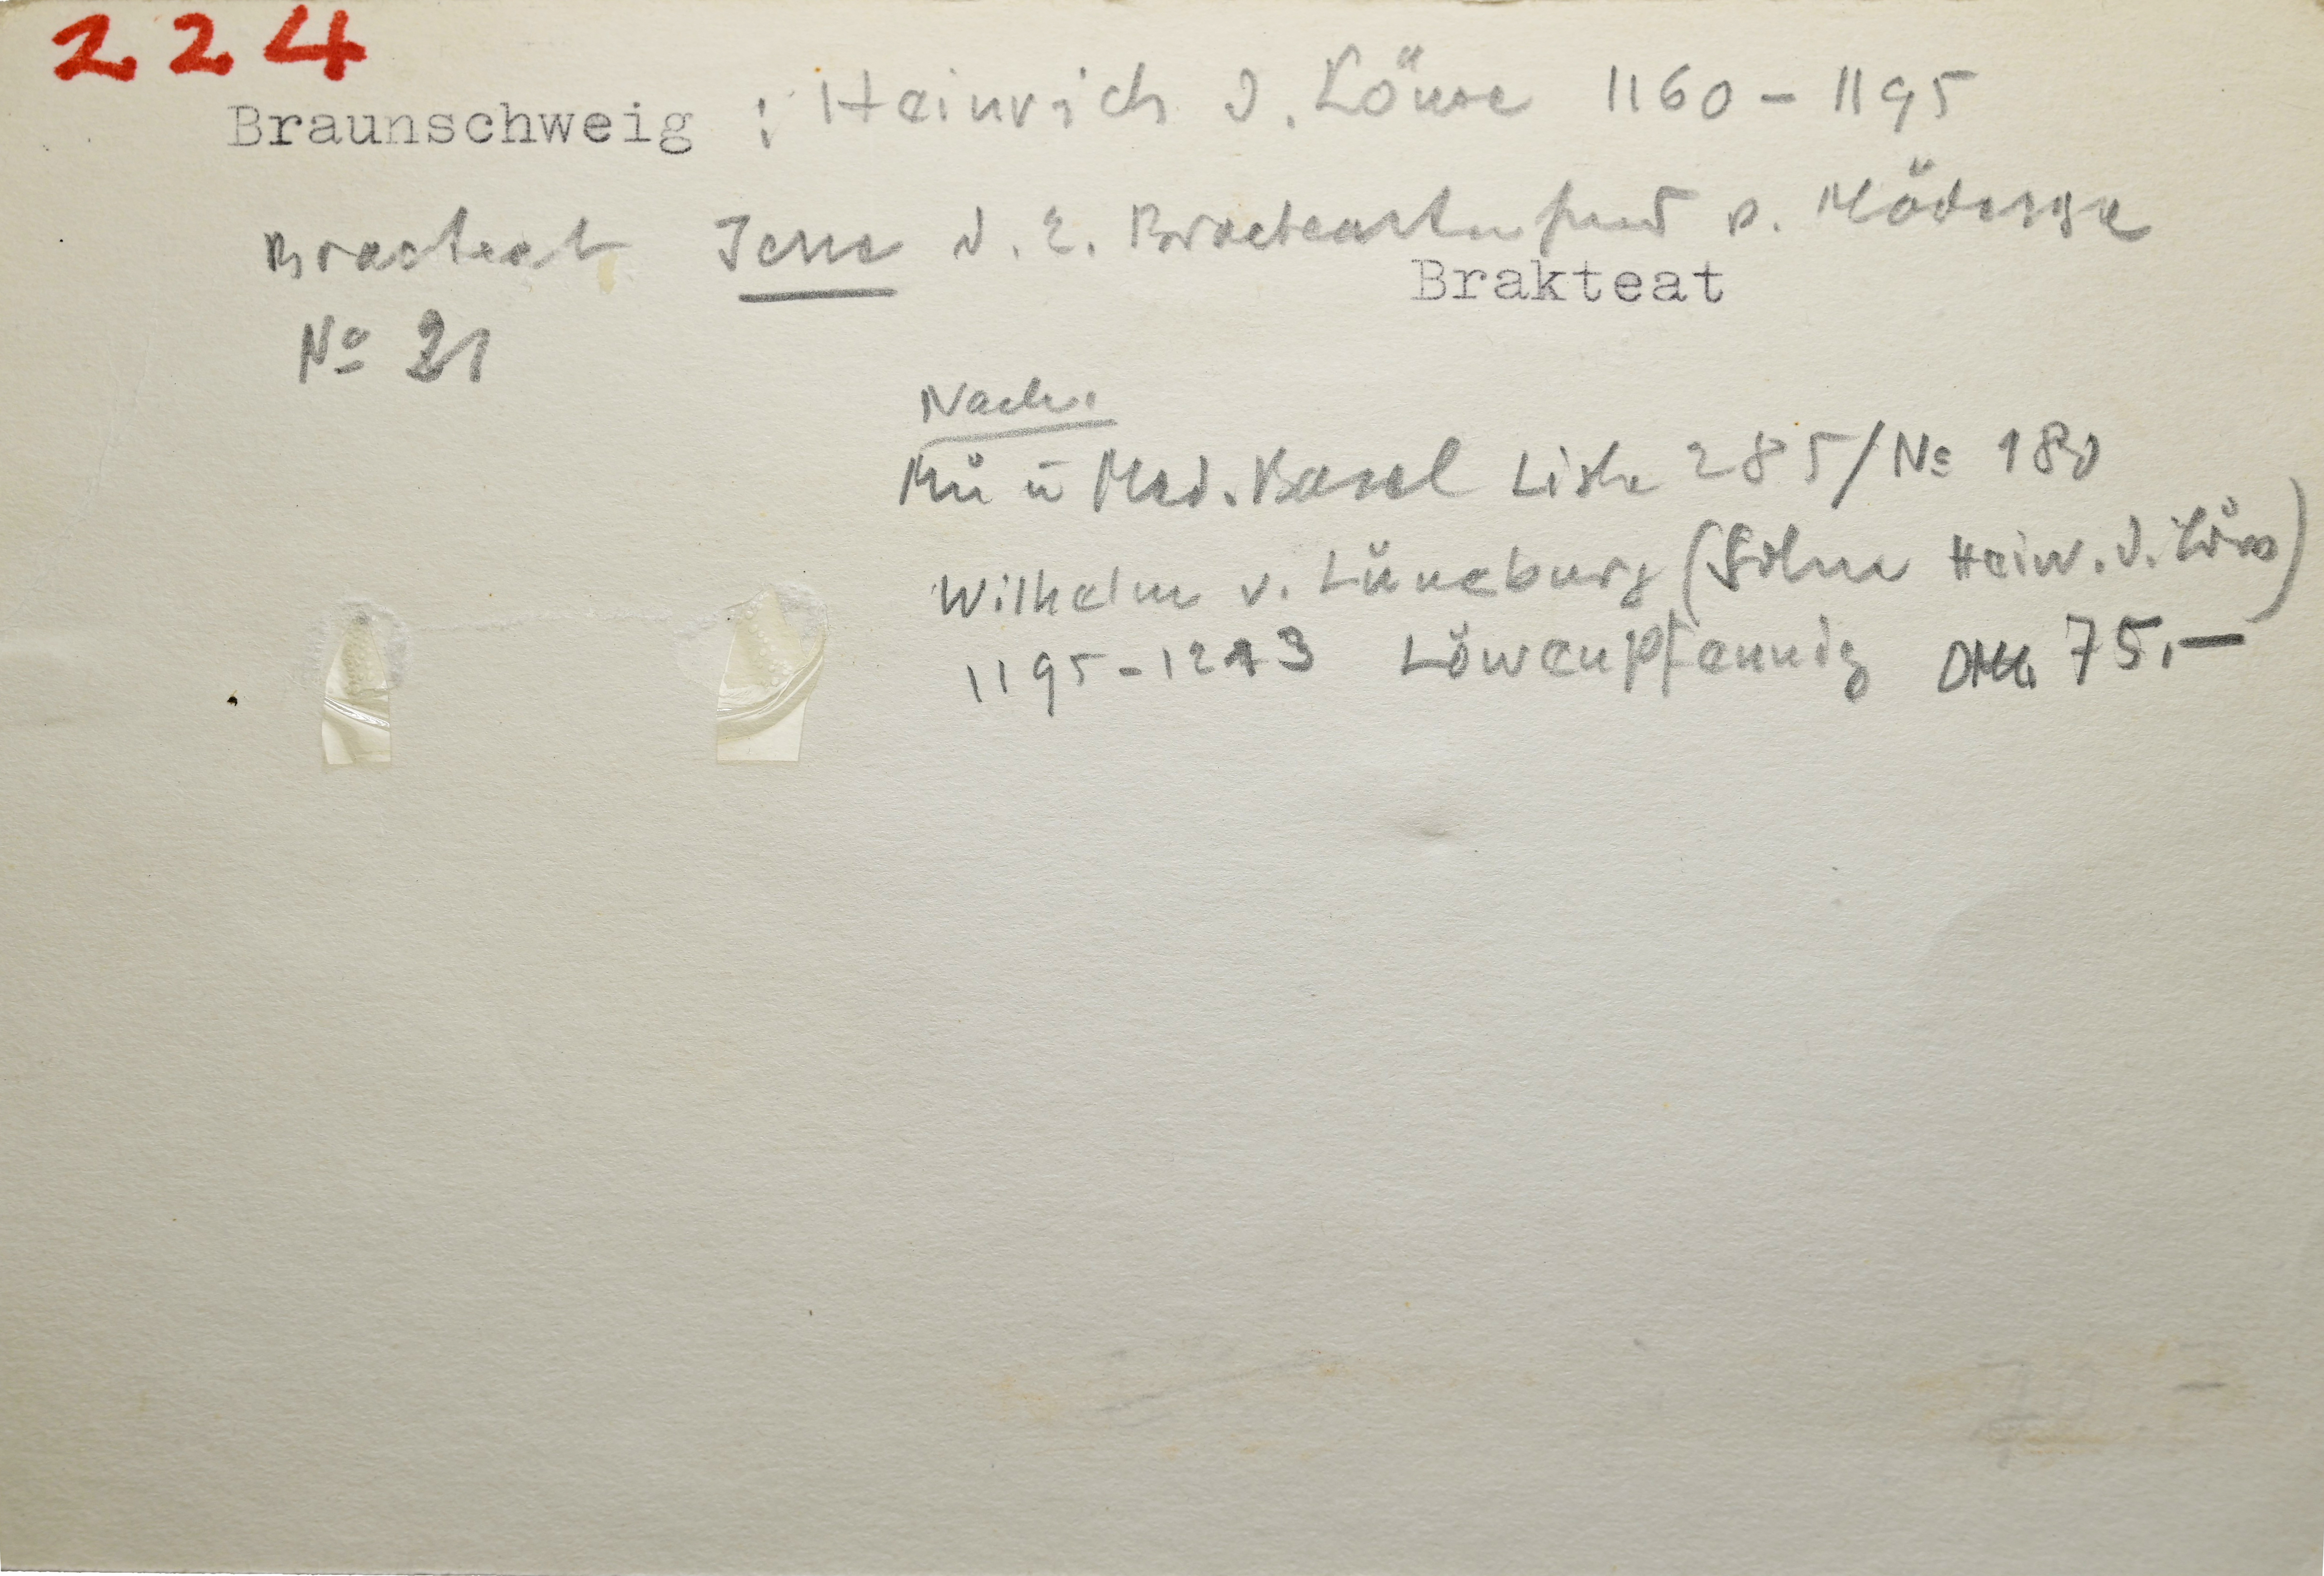 224
Braunschweig : Heinrich d. Löwe 1160 - 1195
Bracteat Jesse d. 2. Bracteatenfund v. Mödesse
Brakteat
No 21
Nach.
Mü ū Med. Basel Liste 285/No 180
Wilhelm v. Lüneburg (Sohn Heinr. d. Löw)
1195-1213 Löwenpfennig DMk. 75,-